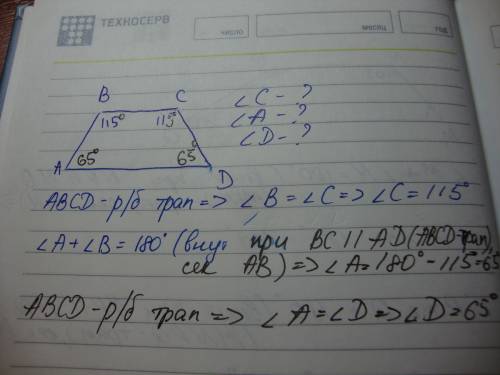 ТЕХНОСЕРВ
число
месяц
год
B C
115° 115°
A 65° 65° D
∠C - ?
∠A - ?
∠D - ?
ABCD - р/б трап => ∠B = ∠C => ∠C = 115°
∠A + ∠B = 180° (внут при BC || AD (ABCD-трап)
сек AB) => ∠A = 180° - 115 = 65
ABCD - р/б трап => ∠A = ∠D => ∠D = 65°